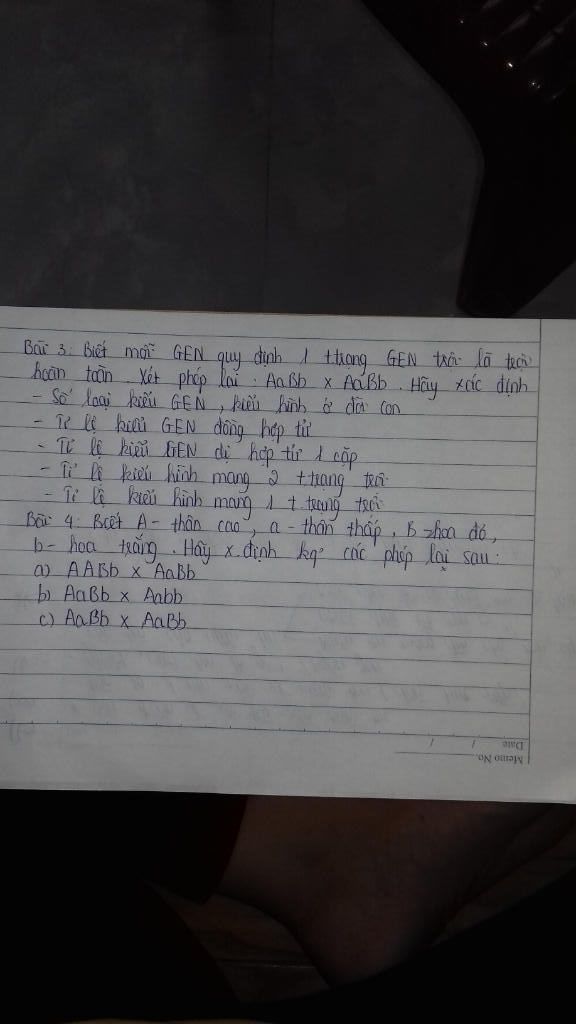 Bài 3: Biết mỗi GEN quy định 1 ttrạng GEN trội là trội
hoàn toàn. Xét phép lai: AaBb x AaBb. Hãy xác định
- Số loại kiểu GEN, kiểu hình ở đời con
- Tỉ lệ kiểu GEN đồng hợp tử
- Tỉ lệ kiểu GEN dị hợp tử 1 cặp
- Tỉ lệ kiểu hình mang 2 ttrạng trội
- Tỉ lệ kiểu hình mang 1 t.trạng trội
Bài 4: Biết A- thân cao, a- thân thấp, B- hoa đỏ,
b- hoa trắng. Hãy x.định kq' các phép lai sau:
a) AABb x AaBb
b) AaBb x Aabb
c) AaBb x AaBb
Memo No.
Date / /